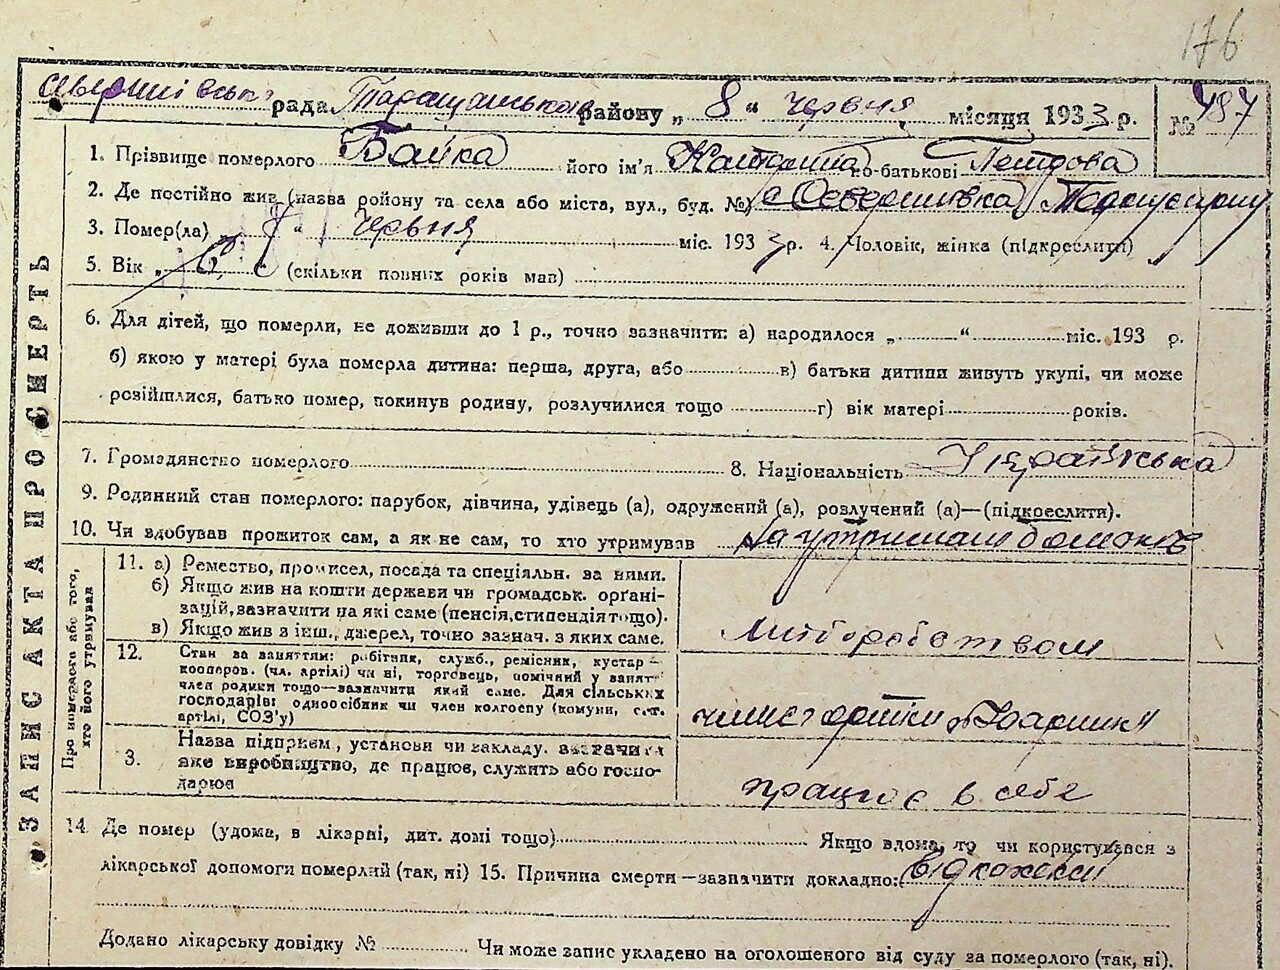 176
рада Таращанського району „ 8 “ червня місяця 1933 р. № 787
ЗАПИС АКТА ПРО СМЕРТЬ
1. Прізвище померлого Байка його ім'я Катерина по-батькові Петрова
2. Де постійно жив (назва району та села або міста, вул., буд. №) с Северинівка
3. Помер(ла) „ 8 “ червня міс. 1933 р. 4. Чоловік, жінка (підкреслити)
5. Вік „ 6 “ (скільки повних років мав)
6. Для дітей, що померли, не доживши до 1 р., точно зазначити: а) народилося „ “ міс. 193 р.
б) якою у матері була померла дитина: перша, друга, або в) батьки дитини живуть укупі, чи може
розійшлися, батько помер, покинув родину, розлучилися тощо г) вік матері років.
7. Громадянство померлого 8. Національність Українська
9. Родинний стан померлого: парубок, дівчина, удівець (а), одружений (а), розлучений (а)—(підкоеслити).
10. Чи здобував прожиток сам, а як не сам, то хто утримував На утриманні батьків
Про померлого або того, хто його утримував
11. а) Ремество, промисел, посада та спеціяльн. за ними.
б) Якщо жив на кошти держави чи громадськ. орґані-
зацій, зазначити на які саме (пенсія, стипендія тощо).
в) Якщо жив з інш., джерел, точно зазнач. з яких саме.
хліборобством
12. Стан за заняттям: робітник, служб., ремісник, кустар —
кооперов. (чл. артілі) чи ні, торговець, помічний у занятт
член родини тощо—зазначити який саме. Для сільських
господарів: одноосібник чи член колгоспу (комуни, с.-г.
артілі, СОЗ'у)
член с г артіли
3. Назва підприєм, установи чи закладу. зазначити
яке виробництво, де працює, служить або госпо-
дарює
працює в себе
14. Де помер (удома, в лікарні, дит. домі тощо) Якщо вдома, то чи користувався з
лікарської допомоги померлий (так, ні) 15. Причина смерти—зазначити докладно:
Додано лікарську довідку № Чи може запис укладено на оголошеного від суду за померлого (так, ні).